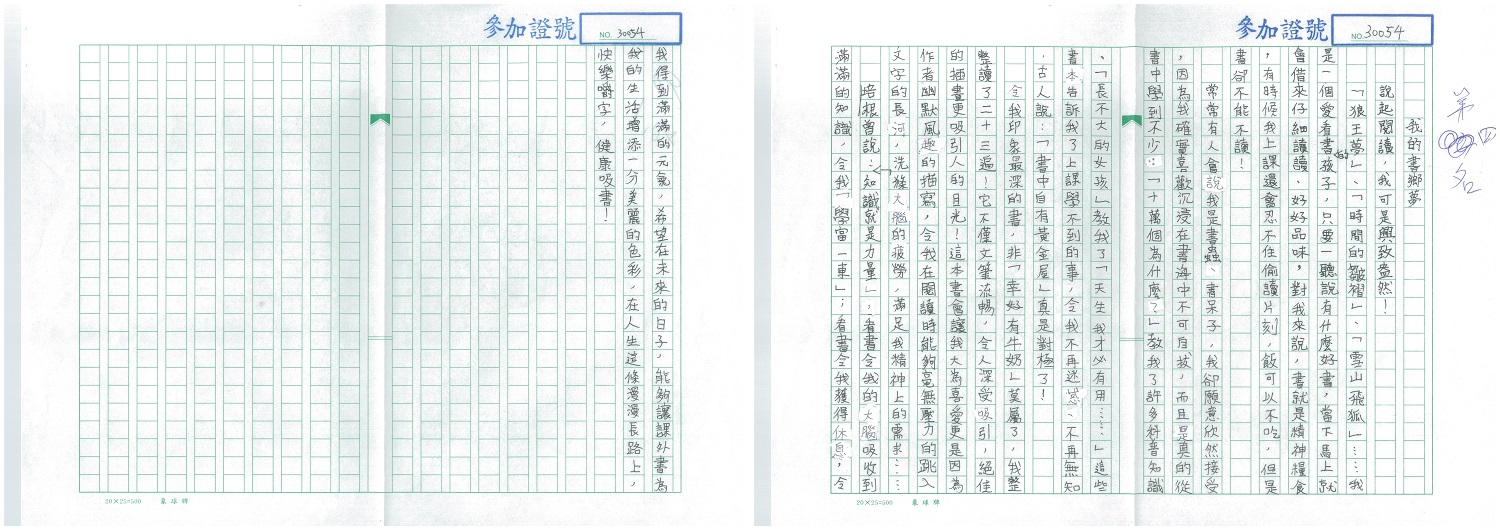 參加證號
NO. 30054
第四名
我的書鄉夢
說起閱讀，我可是興致盎然！
「狼王夢」、「時間的皺褶」、「雪山飛狐」……我
是一個愛看書的孩子，只要一聽說有什麼好書，當下馬上就
會借來仔細讀讀、好好品味，對我來說，書就是精神糧食
，有時候我上課還會忍不住偷讀片刻，飯可以不吃，但是
書卻不能不讀！
常常有人會說我是書蟲、書呆子，我卻願意欣然接受
，因為我確實喜歡沉浸在書海中不可自拔，而且是真的從
書中學到不少：「十萬個為什麼？」教我了許多科普知識
、「長不大的女孩」教我了「天生我才必有用……」這些
書本告訴我了上課學不到的事，令我不再迷惑、不再無知
，古人說：「書中自有黃金屋」真是對極了！
令我印象最深的書，非「幸好有牛奶」莫屬了，我整
整讀了二十三遍！它不僅文筆流暢，令人深受吸引，絕佳
的插畫更吸引人的目光！這本書會讓我大為喜愛更是因為
作者幽默風趣的描寫，令我在閱讀時能夠毫無壓力的跳入
文字的長河，洗滌大腦的疲勞，滿足我精神上的需求……
培根曾說：「知識就是力量」；看書令我的大腦吸收到
滿滿的知識，令我「學富一車」；看書令我獲得休息，令
我得到滿滿的元氣，希望在未來的日子，能夠讓課外書為
我的生活增添一分美麗的色彩，在人生這條漫漫長路上，
快樂嚼字，健康吸書！
20×25=500 象球牌
參加證號
NO. 30054
20×25=500 象球牌